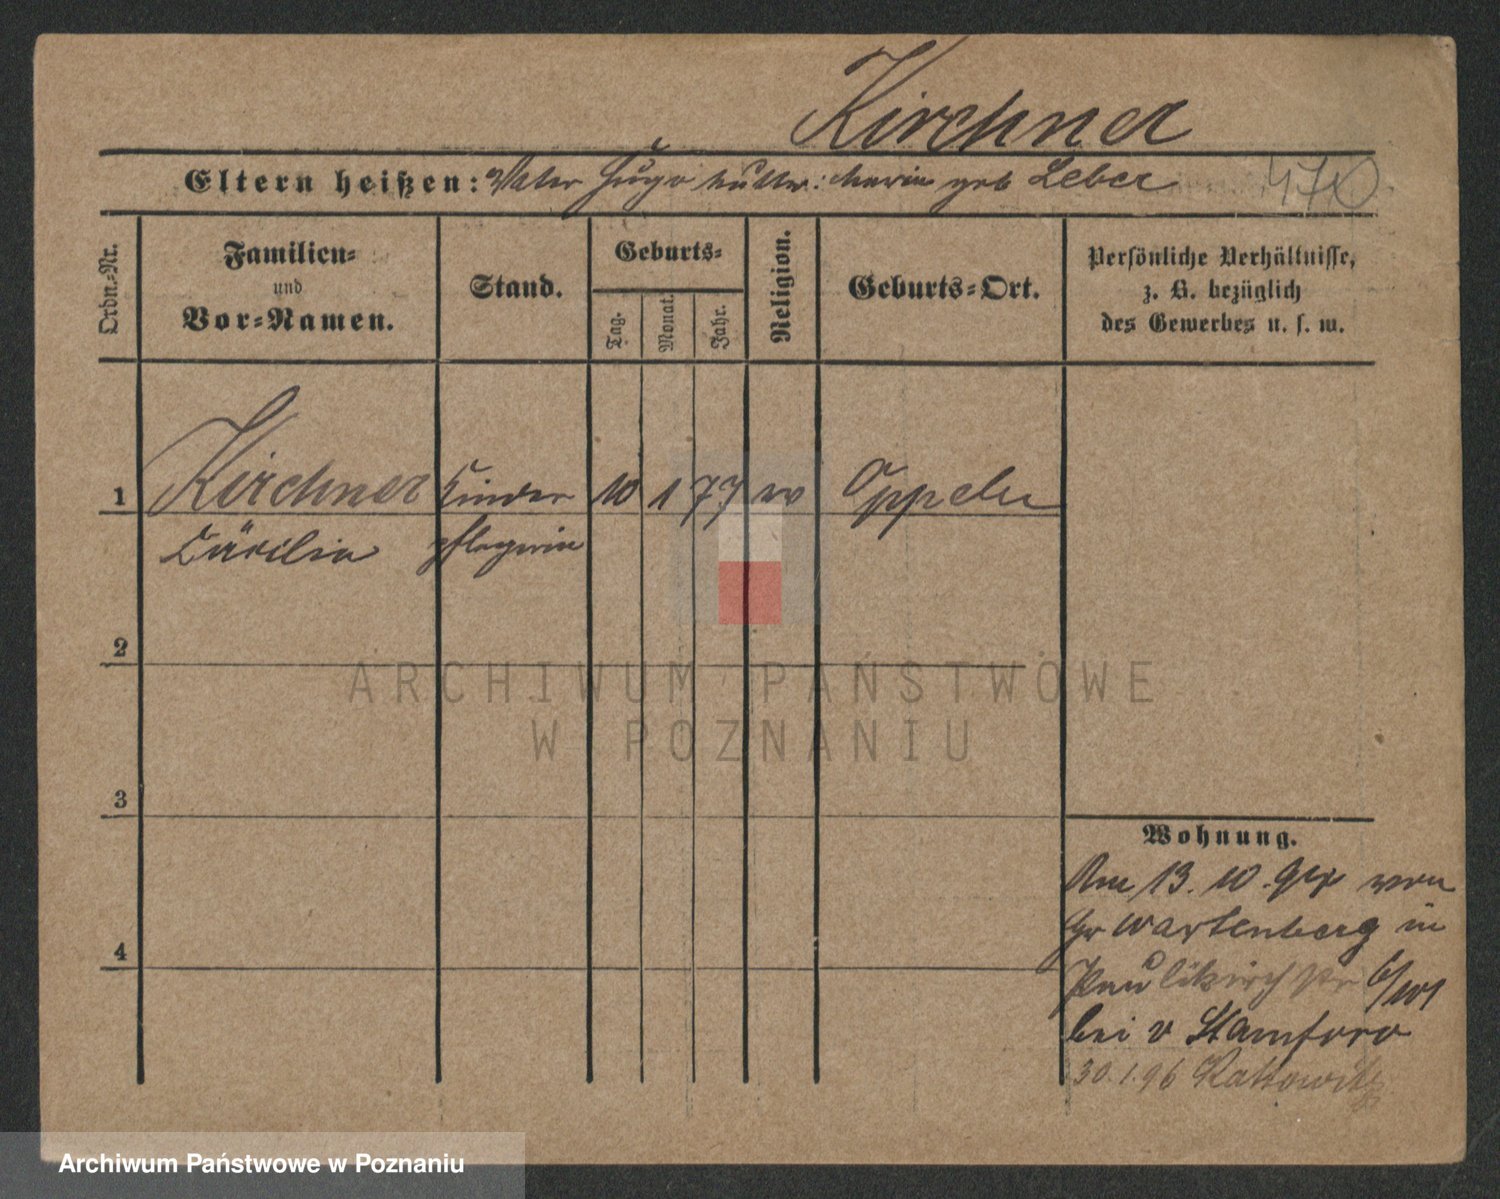 Kirchner
Eltern heißen: Vater Hugo Mutter: Maria geb Leber
470
Ordn.-Nr.
Familien-
und
Vor-Namen.
Stand.
Geburts-
Tag.
Monat.
Jahr.
Religion.
Geburts-Ort.
Persönliche Verhältnisse,
z. B. bezüglich
des Gewerbes u. s. w.
1 Kirchner Kinder 10 1 77 Oppeln
Cäcilie pflegerin
2
3
4
Wohnung.
Am 13. 10. von
Gr Wartenberg in
Paulikirchstr 6/
bei v Stamford
30.1.96 Kattowitz
ARCHIWUM PAŃSTWOWE
W POZNANIU
Archiwum Państwowe w Poznaniu